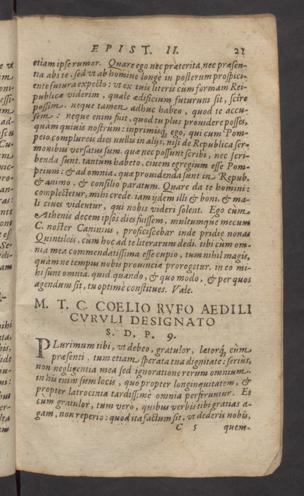 EPIST. II. 21
etiam ipse rumor. Quare ego nec præterita, nec præsen-
tia abs te, sed vt ab homine longè in posterum prospici-
ente futura expecto: vt ex tuis literis cum formam Rei-
publicæ viderim, quale ædificium futurum sit, scire
possim. neque tamen adhuc habeo, quod te accu-
sem: neque enim fuit, quod tu plus prouidere posses,
quàm quiuis nostrûm: inprimisq; ego, qui cum Pom-
peio complures dies nullis in aliis, nisi de Republica ser-
monibus versatus sum. quæ nec possunt scribi, nec scri-
benda sunt. tantum habeto, ciuem egregium esse Pom-
peium: & ad omnia, quæ prouidenda sunt in Repub.
& animo, & consilio paratum. Quare da te homini:
complectetur, mihi crede. iam idem illi & boni, & ma-
li ciues videntur, qui nobis videri solent. Ego cum
Athenis decem ipsos dies fuissem, multumque mecum
C. noster Caninius, proficiscebar inde pridie nonas
Quintileis, cum hoc ad te literarum dedi. tibi cum om-
nia mea commendatissima esse cupio, tum nihil magis,
quàm ne tempus nobis prouinciæ prorogetur. in eo mi-
hi sunt omnia. quid quando, & quo modo, & per quos
agendum sit, tu optimè constitues. Vale.
M. T. C. COELIO RVFO AEDILI
CVRVLI DESIGNATO
S. D. P. 9.
PLurimum tibi, vt debeo, gratulor, lætorq; cùm
præsenti, tum etiam sperata tua dignitate: serius,
non negligentia mea sed ignoratione rerum omnium.
in his enim sum locis, quo propter longinquitatem, &
propter latrocinia tardissimè omnia perferuntur. Et
cum gratulor, tum vero, quibus verbis tibi gratias a-
gam, non reperio: quod ita factum sit, vt dederis nobis,
C 5 quem-